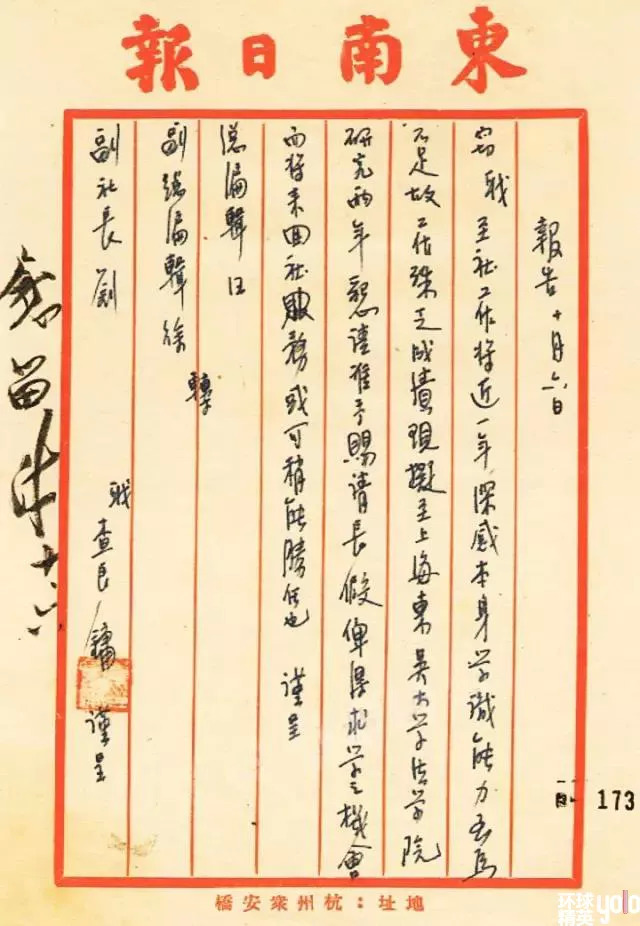 東南日報
報告 十月六日
窃 職 至社工作將近一年深感本身学識能力至為
不足故工作殊乏成績現擬至上海東吳大学法学院
研究兩年懇請准予賜請長假俾得求学之機會
而將來回社服務或可稍能勝任也 謹呈
總編輯汪
副總編輯徐 轉
副社長劉
職 查良鏞 謹呈
留
十六
173
地址：杭州衆安橋
环球精英yolo